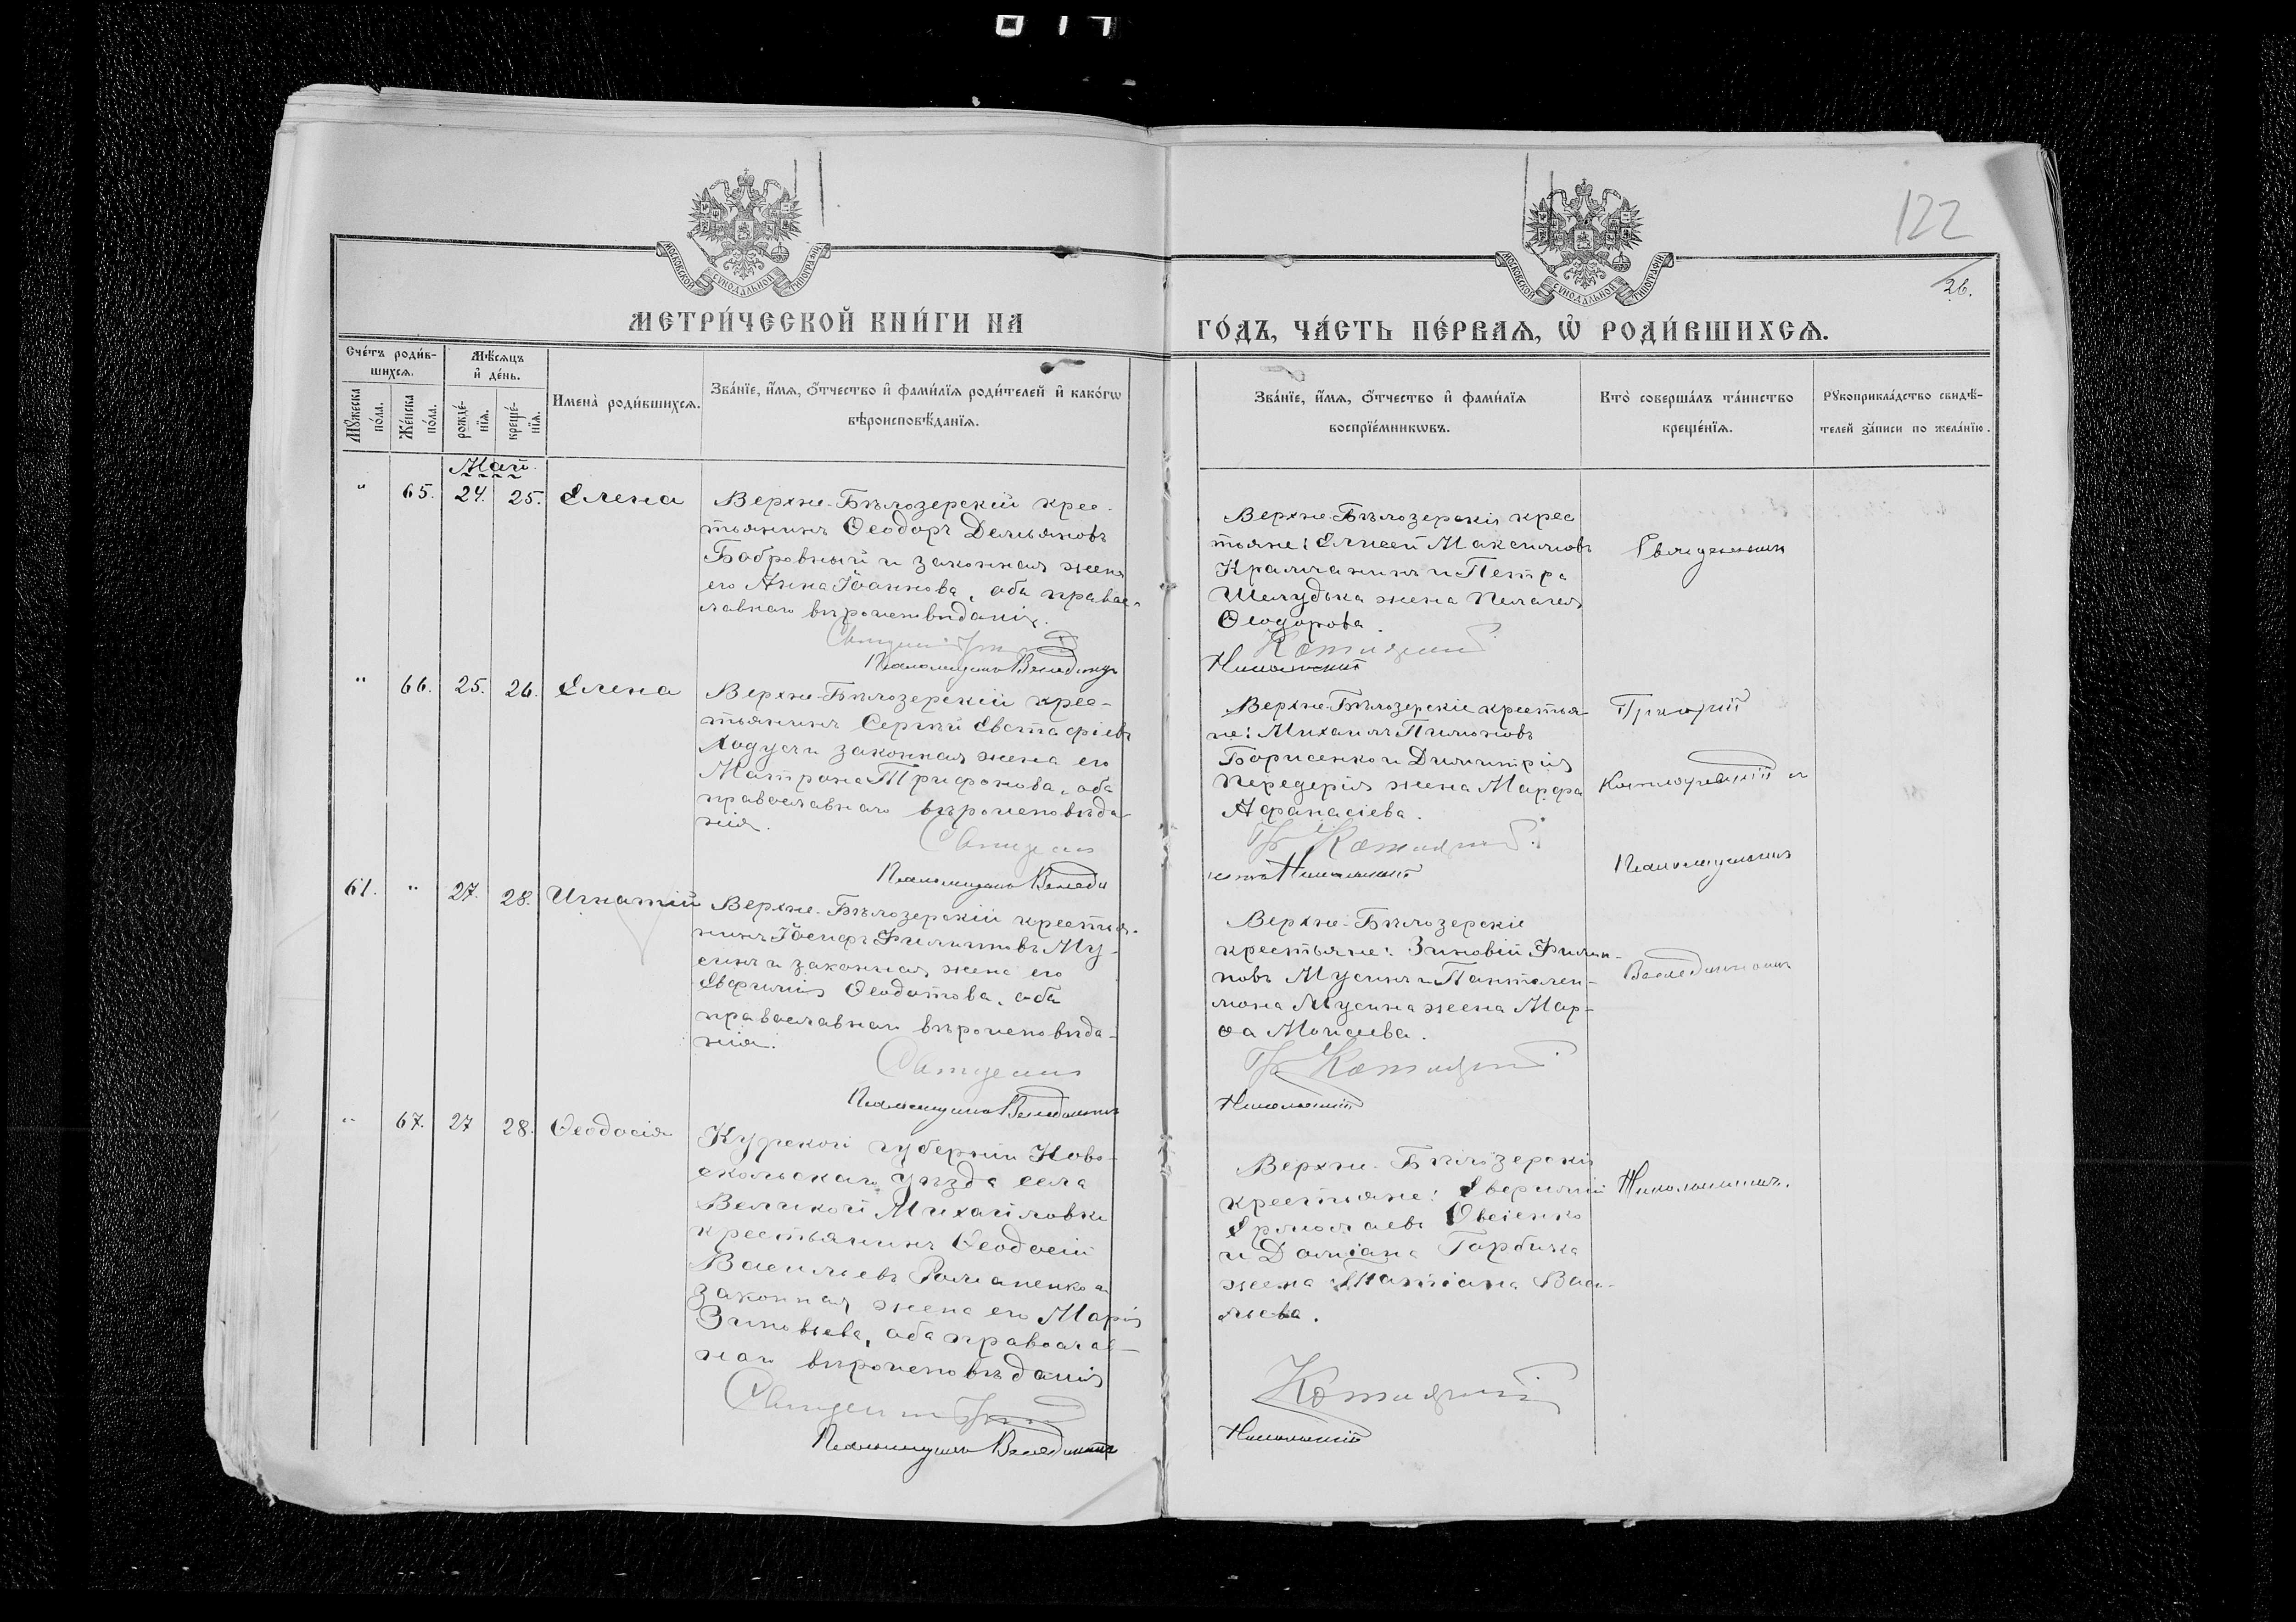 122
26.
МОСКОВСКОЙ СѴНОДАЛЬНОЙ ТИПОГРАФІИ
МОСКОВСКОЙ СѴНОДАЛЬНОЙ ТИПОГРАФІИ
МЕТРИ́ЧЕСКОЙ КНИ́ГИ НА
ГО́ДЪ, ЧА́СТЬ ПЕ́РВАѦ, Ѡ҆ РОДИ́ВШИХСѦ.
Сче́тъ роди́в-
шихсѧ.
Мѣ́сѧцъ
и҆ де́нь.
Мꙋ́жеска
по́ла.
Же́нска
по́ла.
рожде́-
нїѧ.
креще́-
нїѧ.
Имена̀ роди́вшихсѧ.
Зва́нїе, и҆́мѧ, ѻ҆́тчество и҆ фами́лїѧ роди́телей и҆ како́гѡ
вѣроисповѣ́данїѧ.
Зва́нїе, и҆́мѧ, ѻ҆́тчество и҆ фами́лїѧ
воспрїе́мникѡвъ.
Кто̀ соверша́лъ та́инство
креще́нїѧ.
Рꙋкоприкла́дство свидѣ́-
телей за́писи по жела́нїю.
Май.
" 65. 24. 25. Елена
Верхне-Бѣлозерскій крес-
тьянинъ Ѳеодоръ Демьяновъ
Бобровный и законная жена
его Анна Іоаннова, оба правос-
лавного вѣроисповѣданія.
Псаломщикъ Венедиктъ
Верхне-Бѣлозерскія крес
тьяне: Елисей Максимовъ
Крамчанинъ и Петра
Шелудька жена Пелагея
Ѳеодорова.
Никольскій
Священникъ
" 66. 25. 26. Елена
Верхне-Бѣлозерскій крес-
тьянинъ Сергѣй Евстафіевъ
Ходусъ и законная жена его
Матрона Трифонова, оба
православного вѣроисповѣда
нія.
Псаломщикъ
Верхне-Бѣлозерскіе крестья
не: Михаилъ Пимоновъ
Борисенко и Димитрія
Передерія жена Марфа
Афанасіева.
Никольскій
Григорій
и
Псаломщикъ
61. " 27. 28. Игнатій
Верхне-Бѣлозерскій крестья-
нинъ Іосифъ Филиповъ Му-
синъ и законная жена его
Евфимія Ѳеодотова, оба
православнаго вѣроисповѣда-
нія.
Псаломщикъ Венедиктъ
Верхне-Бѣлозерскіе
крестьяне: Зиновій Филип-
повъ Мусинъ и Пантелеи-
мона Мусина жена Мар-
ѳа Моисеева.
Никольскій
" 67. 27 28. Ѳеодосія
Курской губерніи Ново-
скольскаго уѣзда села
Великой Михайловки
крестьянинъ Ѳеодосій
Васильевъ Романенко и
законная жена его Марія
Зиновьева, оба православ-
наго вѣроисповѣданія
Псаломщикъ Венедиктъ
Верхне-Бѣлозерскія
крестьяне: Евфимій
Ермолаевъ Овсіенко
и Даміана Горбика
жена Татіана Васи-
льева.
Никольскій
Никольскій.